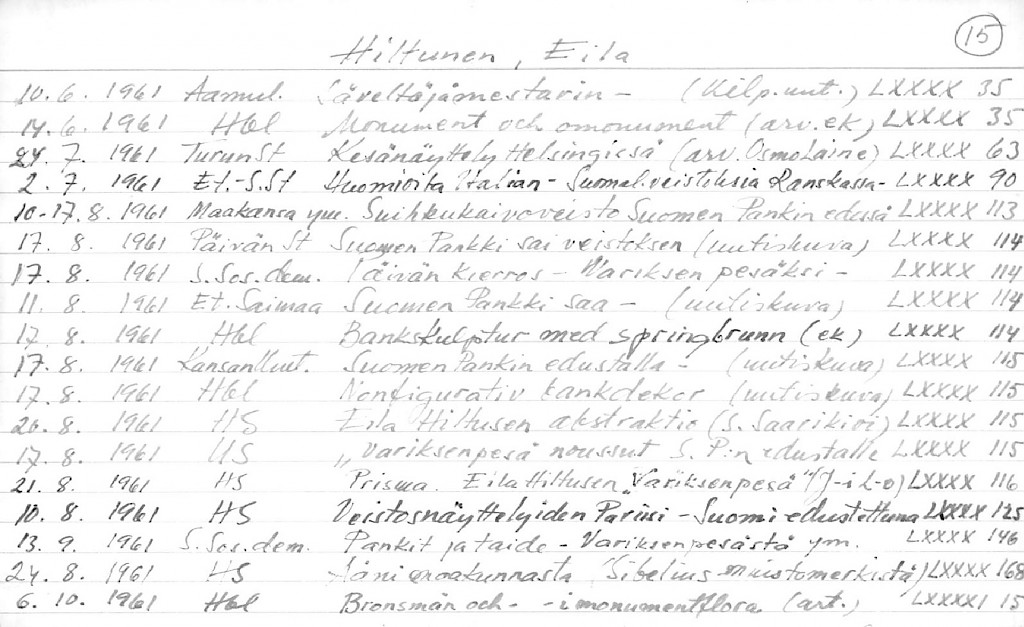 15
Hiltunen, Eila
10.6. 1961 Aamul. Säveltäjämestarin - (Kilp.uut.) LXXXX 35
14.6. 1961 Hbl Monument och omonument (arv. ek) LXXXX 35
24.7. 1961 TurunSt Kesänäyttely Helsingissä (arv. Osmo Laine) LXXXX 63
2.7. 1961 Et.-S.St Huomioita Italian - Suomal. veistoksia Ranskassa - LXXXX 90
10-17.8. 1961 Maakansa ym. Suihkukaivoveisto Suomen Pankin edessä LXXXX 113
17.8. 1961 Päivän St Suomen Pankki sai veistoksen (uutiskuva) LXXXX 114
17.8. 1961 S.Sos.dem. Päivän kierros - Variksen pesäksi - LXXXX 114
11.8. 1961 Et. Saimaa Suomen Pankki saa - (uutiskuva) LXXXX 114
17.8. 1961 Hbl Bankskulptur med springbrunn (ek) LXXXX 114
17.8. 1961 KansanUut. Suomen Pankin edustalla - (uutiskuva) LXXXX 115
17.8. 1961 Hbl Nonfigurativ bankdekor (uutiskuva) LXXXX 115
20.8. 1961 HS Eila Hiltusen abstraktio (S. Saarikivi) LXXXX 115
17.8. 1961 US „Variksenpesä" noussut S.P:n edustalle LXXXX 115
21.8. 1961 HS Prisma. Eila Hiltusen „Variksenpesä" (J-i L-o) LXXXX 116
10.8. 1961 HS Veistosnäyttelyiden Pariisi - Suomi edustettuna LXXXX 125
13.9. 1961 S.Sos.dem. Pankit ja taide - Variksenpesästä ym. LXXXX 146
24.8. 1961 HS Ääni maakunnasta (Sibelius muistomerkistä) LXXXX 168
6.10. 1961 Hbl Bronsmän och - - i monumentflora (art.) LXXXXI 15